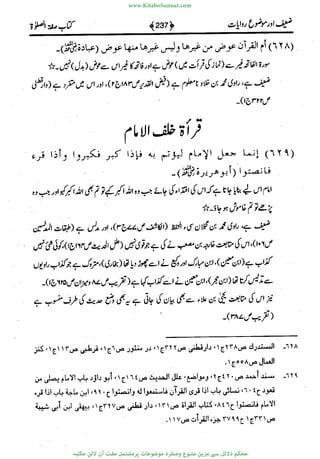 www.KitaboSunnat.com
ضعیف اور موضوع روایات ﴿237﴾ کتاب صفۃ الصلوٰۃ
(۶۲۸) أم القرآن عوض من غيرها وليس غيرها منها عوض (عبادة)۔
سورۃ الفاتحہ غیر سے (نماز کی قرأت میں) عوض ہے اور فاتحہ کا غیر اس سے عوض (بدل) نہیں۔☆
ضعیف ہے، راوی محمد بن خلاد نامعلوم ہے (فیض القدیر ص۱۸۳ ج۲)، اور اس میں متفرد ہے (دارقطنی
ص۳۲۲ ج۱)۔
قرأۃ خلف الامام
(۶۲۹) إنما جعل الإمام ليؤتم به فإذا كبر فكبروا وأذا قرء
فانصتوا (أبو هريرة)۔
امام اس لیے بنایا جاتا ہے کہ اس کی اقتداء کی جائے جب وہ اللہ اکبر کہے تو تم بھی اللہ اکبر کہو اور جب وہ
پڑھے تو تم خاموش ہو جاؤ۔☆
ضعیف ہے، راوی محمد بن عجلان سیء الحفظ (الکاشف ص۷۷ ج۳)، اور مدلس ہے (طبقات المدلسین
ص۱۰۶)، اور اس کی متابعت خارجہ بن مصعب نے کی ہے جو قوی نہیں (علل الحدیث ص۱۶۴ ج۱)، کوئی شئ نہیں
کذاب ہے (ابن معین)، ابن مبارک اور وکیع نے اسے چھوڑ دیا تھا (بخاری)، متروک ہے جو کذاب راویوں
سے تدلیس کرتا تھا (ابن حجر)، ابن معین نے اسے کذاب کہا ہے (تقریب ص۸۷ ومیزان ص۶۲۵ ج۱)۔
نیز اس کی متابعت یحییٰ بن علاء سے بھی بیان کی جاتی ہے یہ بھی وضع حدیث کی طرف منسوب ہے
(تقریب ص۳۷۸)۔
۶۲۸۔ المستدرك ص۲۳۸ ج۱، دارقطني ص۳۲۲ ج۱، در منثور ص۶ ج۱، قرطبي ص۱۱۳ ج۱، كنز
العمال ص۵۵۸ ج۱۔
۶۲۹۔ مسند أحمد ص۴۲۰ ج۲ ومواضع، علل الحديث ص۱۶۴ ج۱، أبو داؤد باب الامام يصلى من
قعود ح۶۰۴، نسائي باب اذا قرى القرآن فاستمعوا له وانصتوا ح۹۲۰، ابن ماجة باب اذا قرء
الامام فانصتوا ح۸۴۶، كتاب القراة ص۱۳۱، دار قطني ص۳۲۷ ج۱، بيهقي ابن أبي شيبة
ص۳۳۱ ج۱ ح۳۷۹۹، جزء القرأت ص۱۱۷۔
محکم دلائل سے مزین متنوع ومنفرد موضوعات پر مشتمل مفت آن لائن مکتبہ